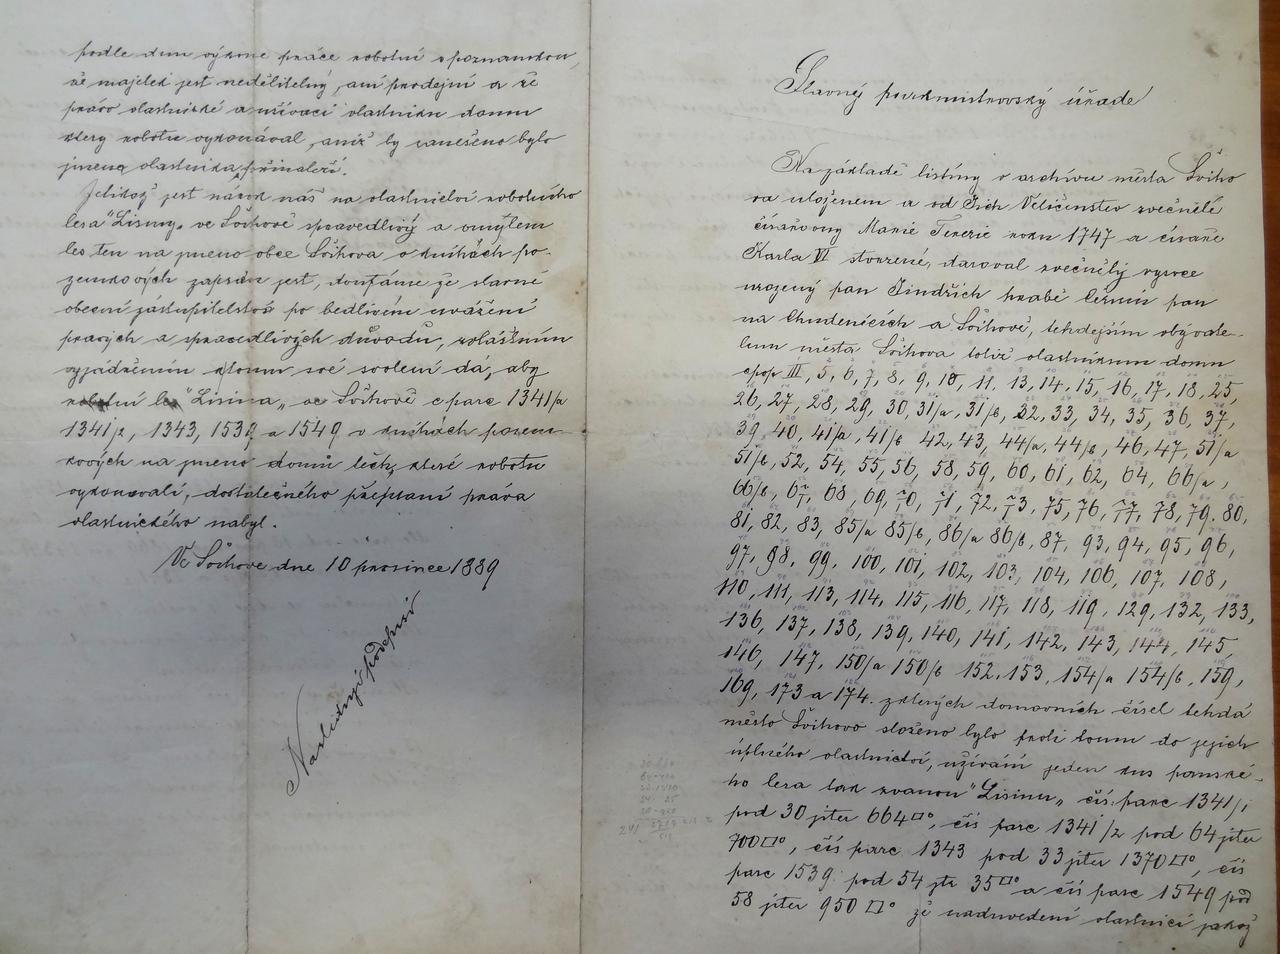 podle dnu výkone práce robotní s poznamkou,
že majetek jest nedělitelný, ani prodejní a že
právo vlastnické a užívací vlastníku domu
ktery robotu vykonával, aniž by vaneseno bylo
jmeno vlastníka, přináleží.
Jelikož jest nárok náš na vlastnictví robotního
lesa "Lisiny" ve Šihově spravedlivý a omylem
les ten na jmeno obce Šihova v knihách po-
zemkových zapsán jest, doufáme že slavné
obecní zastupitelstvo po bedlivém uvážení
pravých a spravedlivých důvodu, zvláštním
vyjádřením ktomu své svolení dá, aby
robotní les "Lisina" ve Šihově c parc 1341/a
1341/2, 1343, 1539 a 1549 v knihách pozem-
kových na jmeno domů těch, které robotu
vykonavali, dostatečného přepsaní práva
vlastnického nabyl.
Ve Šihove dne 10 prosince 1889
Nasledují podepisi
Slavný purkmistrovský úřade
Na základě listiny v archívu města Šviho
va uloženem a od Jich Veličenstev zvečnělé
císařovny Marie Terezie roku 1747 a císaře
Karla VI stvrzené, daroval zvečnělý vysoce
urozený pan Jindřich hrabě Černín pan
na Chudenicích a Šihově, tehdejším obyvate-
lum města Šihova totiž vlastníkum domu
čpop III, 5, 6, 7, 8, 9, 10, 11, 13, 14, 15, 16, 17, 18, 25,
26, 27, 28, 29, 30, 31/a, 31/b, 32, 33, 34, 35, 36, 37,
39, 40, 41/a, 41/b 42, 43, 44/a, 44/b, 46, 47, 51/a
51/b, 52, 54, 55, 56, 58, 59, 60, 61, 62, 64, 66/a,
66/b, 67, 68, 69, 70, 71, 72, 73, 75, 76, 77, 78, 79, 80,
81, 82, 83, 85/a 85/b, 86/a 86/b, 87, 93, 94, 95, 96,
97, 98, 99, 100, 101, 102, 103, 104, 106, 107, 108,
110, 111, 113, 114, 115, 116, 117, 118, 119, 129, 132, 133,
136, 137, 138, 139, 140, 141, 142, 143, 144, 145,
146, 147, 150/a 150/b 152, 153, 154/a 154/b, 159,
169, 173 a 174. z kterých domovních čísel tehdá
město Šihovo složeno bylo proti tomu do jejich
úplného vlastnictví, užívání jeden kus panské-
ho lesa tak zvanou "Lisinu" čís: parc 1341/1
pod 30 jiter 664□°, čís parc 1341/2 pod 64 jiter
700□°, čís parc 1343 pod 33 jiter 1370□°, čís
parc 1539 pod 54 jtr 35□° a čís parc 1549 pod
58 jiter 950□° že naduvedení vlastníci jakož